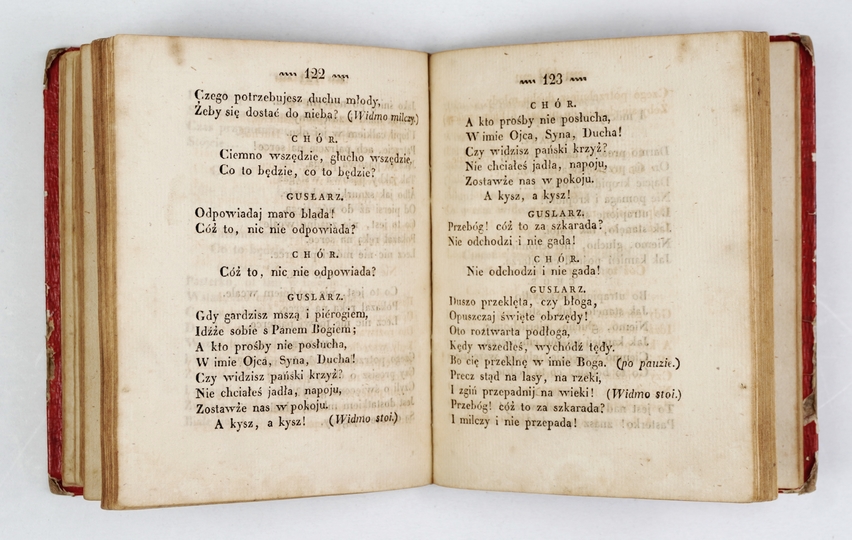 122
Czego potrzebujesz duchu młody,
Żeby się dostać do nieba? (Widmo milczy.)
CHÓR.
Ciemno wszędzie, głucho wszędzie,
Co to będzie, co to będzie?
GUSLARZ.
Odpowiadaj maro blada!
Cóż to, nic nie odpowiada?
CHÓR.
Cóż to, nic nie odpowiada?
GUSLARZ.
Gdy gardzisz mszą i piérogiem,
Idźże sobie s Panem Bogiem;
A kto prośby nie posłucha,
W imie Ojca, Syna, Ducha!
Czy widzisz pański krzyż?
Nie chciałeś jadła, napoju,
Zostawże nas w pokoju.
A kysz, a kysz! (Widmo stoi.)
123
CHÓR.
A kto prośby nie posłucha,
W imie Ojca, Syna, Ducha!
Czy widzisz pański krzyż?
Nie chciałeś jadła, napoju,
Zostawże nas w pokoju.
A kysz, a kysz!
GUSLARZ.
Przebóg! cóż to za szkarada?
Nie odchodzi i nie gada!
CHÓR.
Nie odchodzi i nie gada!
GUSLARZ.
Duszo przeklęta, czy błoga,
Opuszczaj święte obrzędy!
Oto roztwarta podłoga,
Kędy wszedłeś, wychódź tędy.
Bo cię przeklnę w imie Boga. (po pauzie.)
Precz stąd na lasy, na rzeki,
I zgiń przepadnij na wieki! (Widmo stoi.)
Przebóg! cóż to za szkarada?
I milczy i nie przepada!